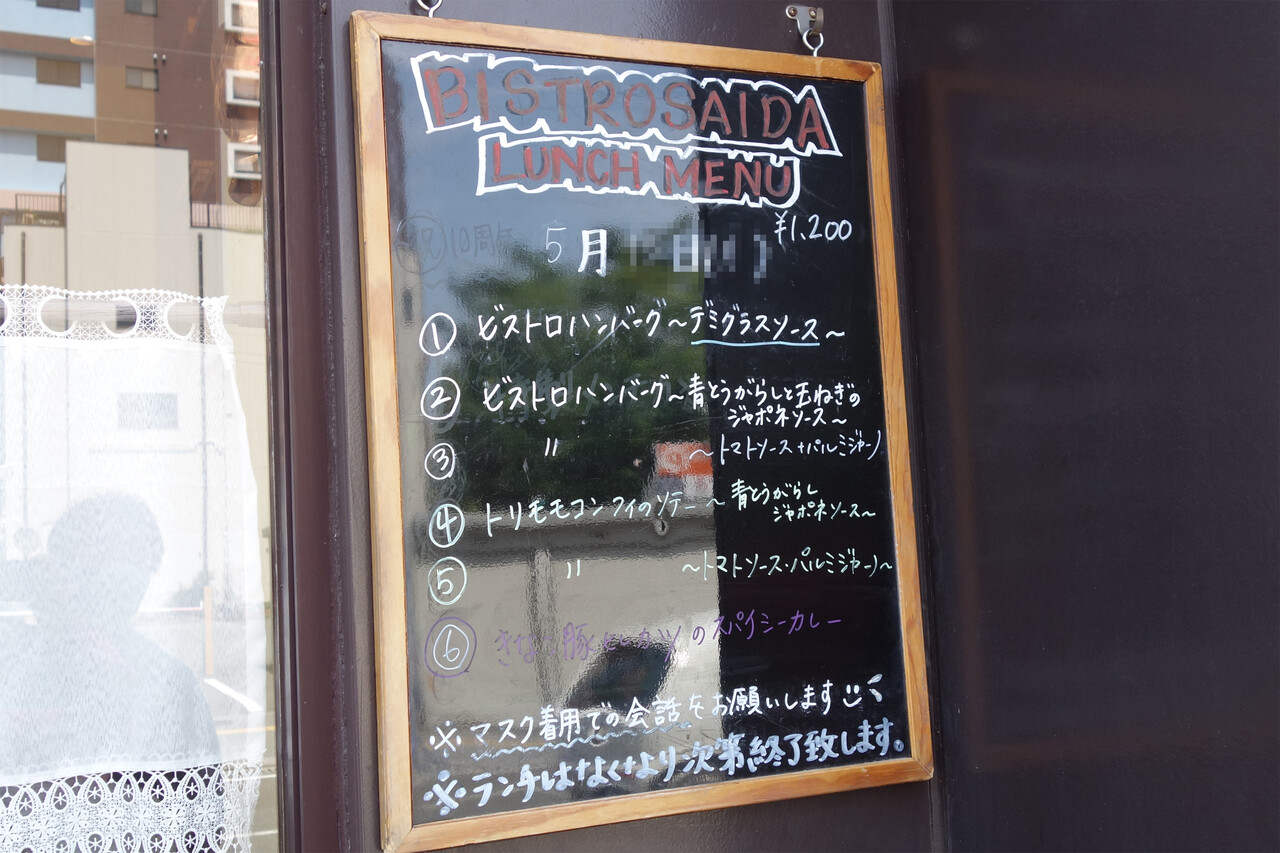 BISTRO SAIDA
LUNCH MENU
¥1,200
5月 日
① ビストロハンバーグ～デミグラスソース～
② ビストロハンバーグ～青とうがらしと玉ねぎの
ジャポネソース～
③ 〃 ～トマトソース+パルミジャーノ
④ トリモモコンフィのソテー～青とうがらし
ジャポネソース～
⑤ 〃 ～トマトソース・パルミジャーノ～
⑥ きなこ豚ヒレカツのスパイシーカレー
※ マスク着用での会話をお願いします
※ ランチはなくなり次第終了致します。